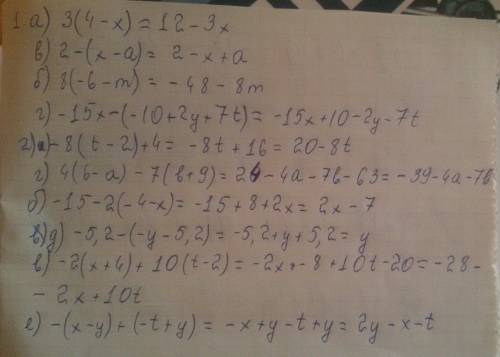 1. а) 3(4-x) = 12-3x
в) 2-(x-a) = 2-x+a
б) 8(-6-m) = -48-8m
г) -15x-(-10+2y+7t) = -15x+10-2y-7t
2) а) -8(t-2)+4 = -8t+16 = 20-8t
г) 4(6-a)-7(b+9) = 24-4a-7b-63 = -39-4a-7b
б) -15-2(-4-x) = -15+8+2x = 2x-7
д) -5,2-(-y-5,2) = -5,2+y+5,2 = y
в) -2(x+4)+10(t-2) = -2x-8+10t-20 = -28-
-2x+10t
е) -(x-y)+(-t+y) = -x+y-t+y = 2y-x-t